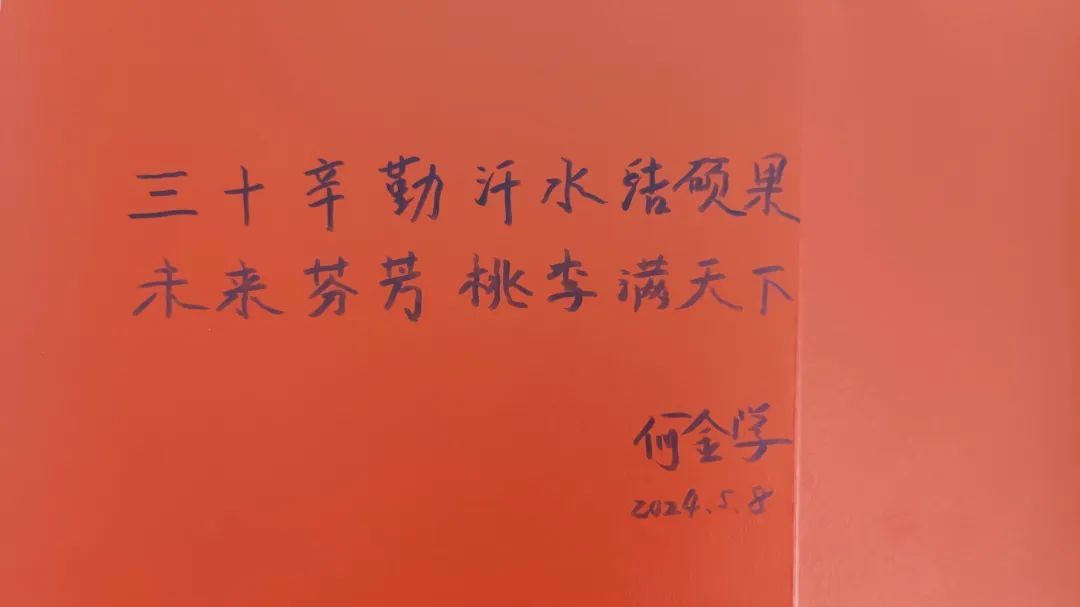 三十辛勤汗水结硕果
未来芬芳桃李满天下
何金学
2024.5.8